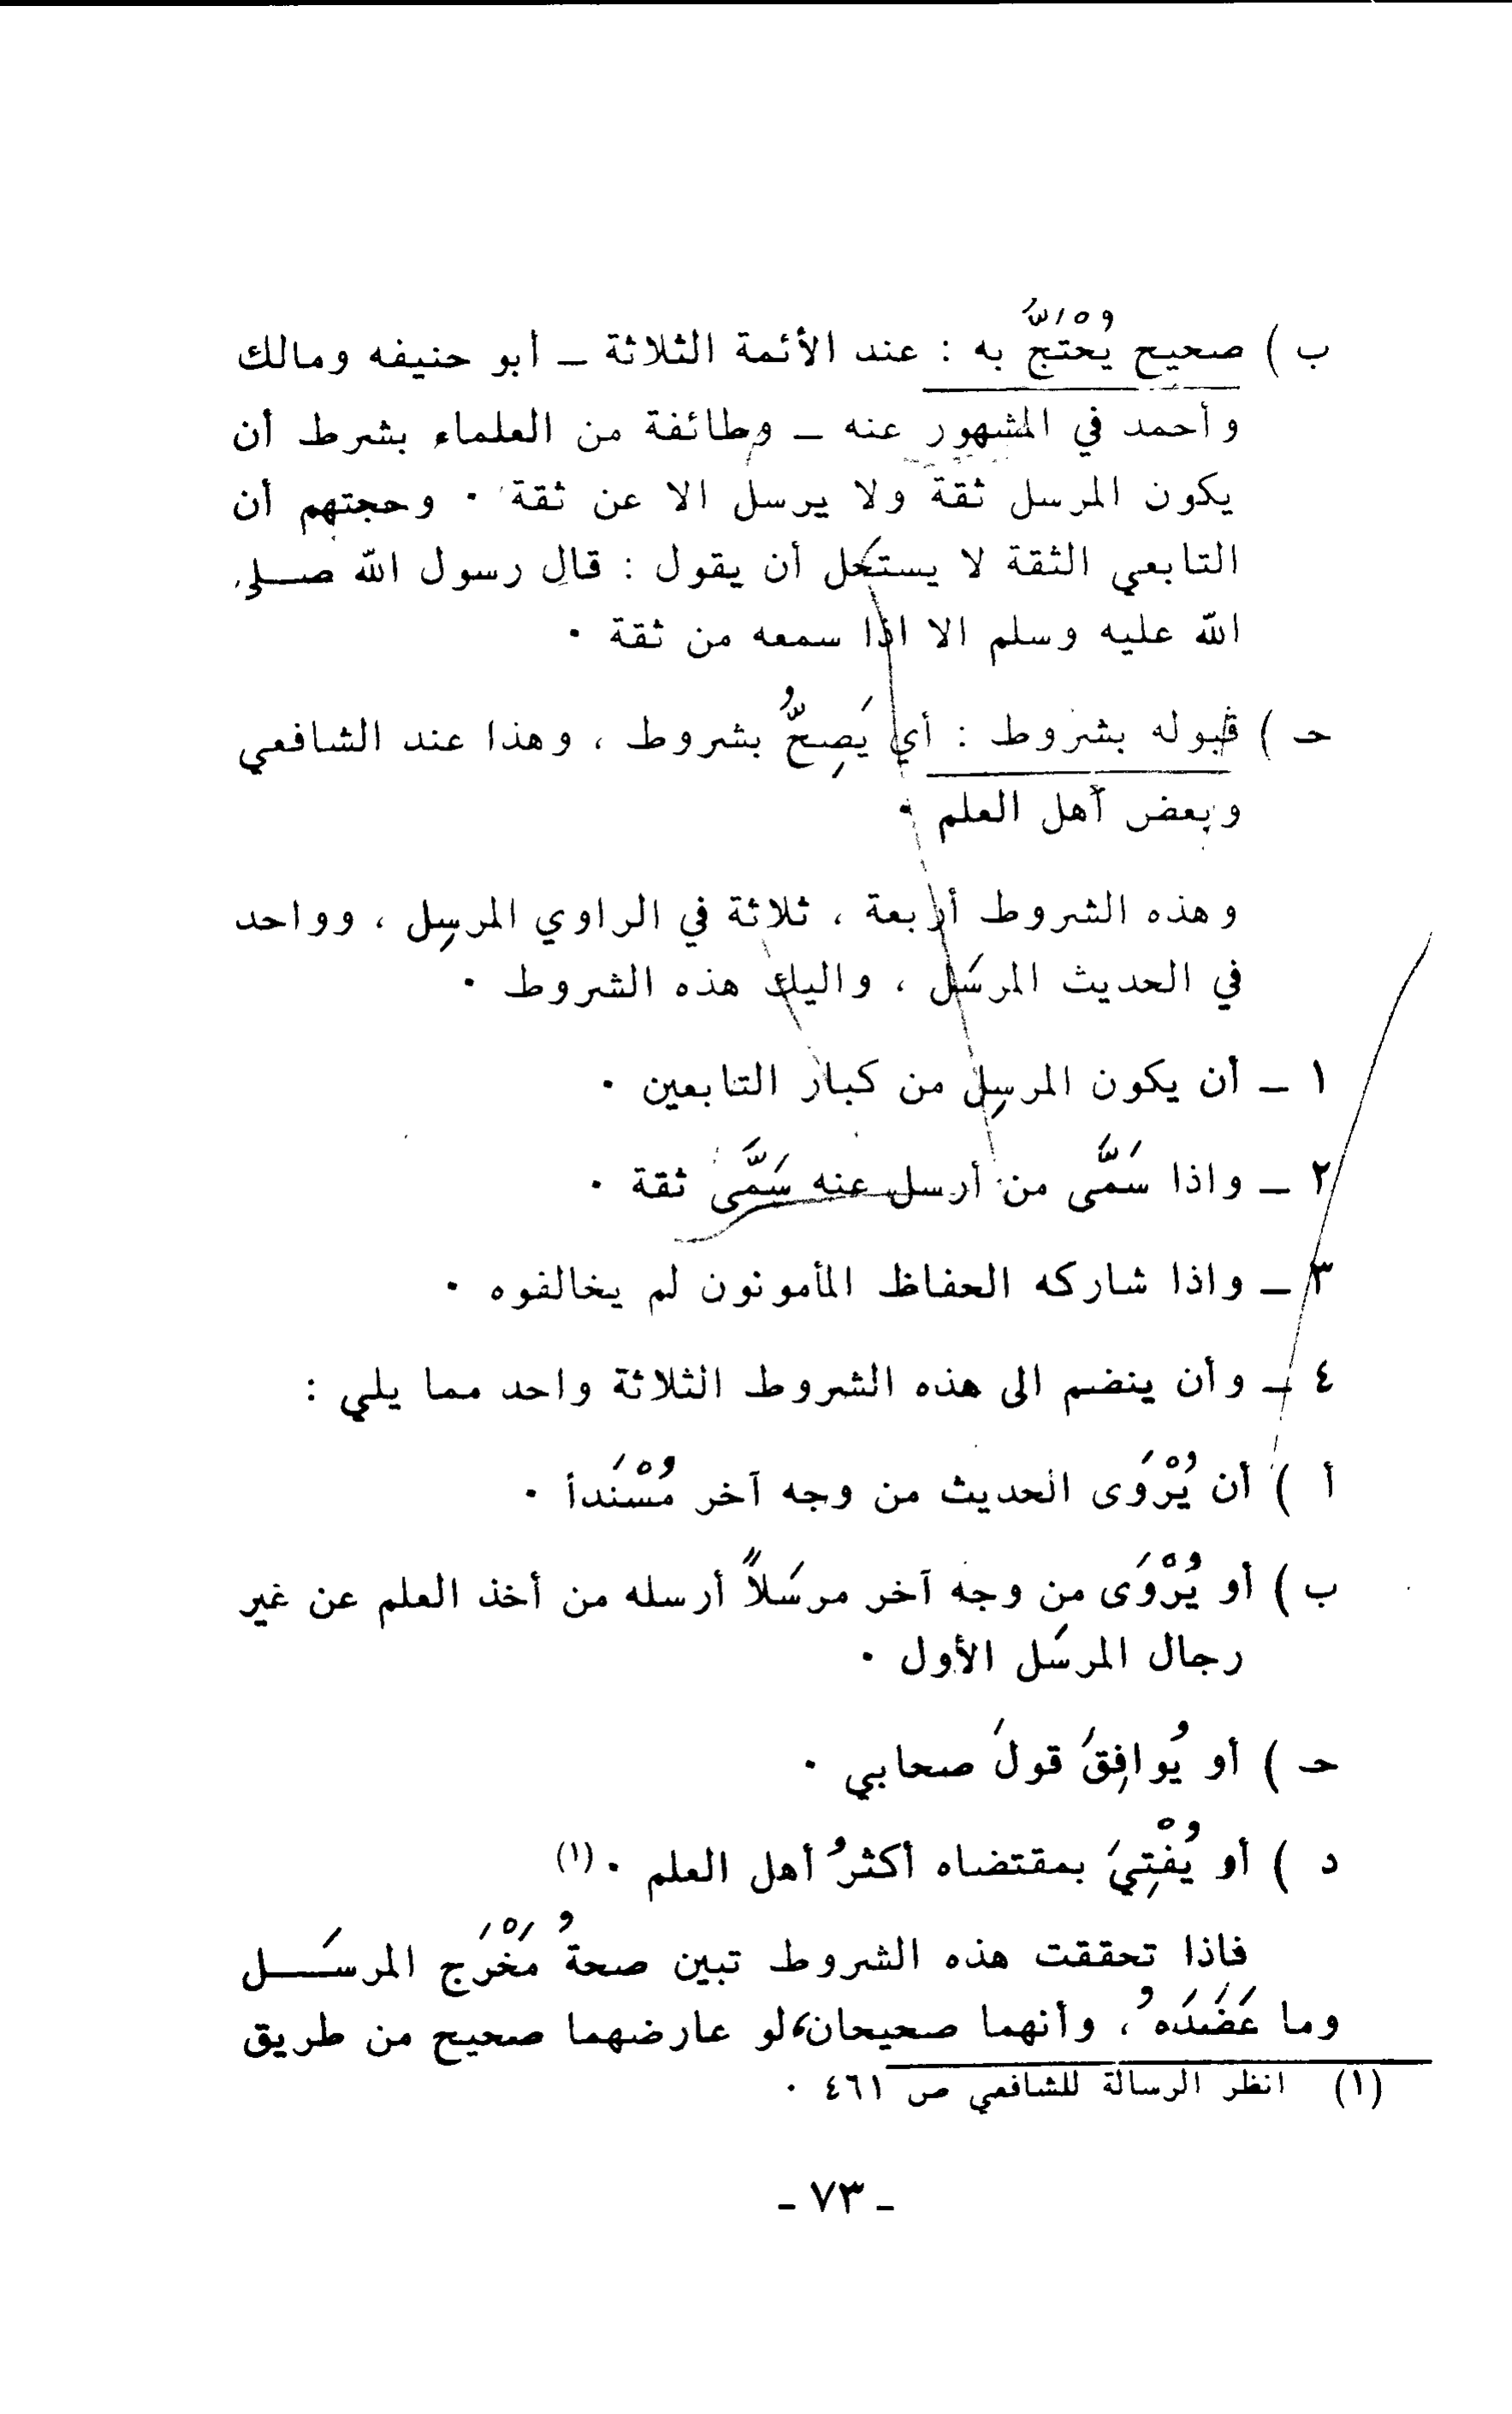 ب ) صحيح يُحْتَجُّ به : عند الأئمة الثلاثة ــ أبو حنيفه ومالك
وأحمد في المشهور عنه ــ وطائفة من العلماء بشرط أن
يكون المرسل ثقة ولا يرسل الا عن ثقة . وحجتهم أن
التابعي الثقة لا يستحل أن يقول : قال رسول الله صـــلى
الله عليه وسلم الا اذا سمعه من ثقة .
حـ ) قبوله بشروط : أي يَصِحُّ بشروط ، وهذا عند الشافعي
وبعض أهل العلم .
وهذه الشروط أربعة ، ثلاثة في الراوي المرسِل ، وواحد
في الحديث المرسَل ، واليك هذه الشروط .
١ ــ أن يكون المرسِل من كبار التابعين .
٢ ــ واذا سَمَّى من أرسل عنه سَمَّى ثقة .
٣ ــ واذا شاركه الحفاظ المأمونون لم يخالفوه .
٤ ــ وأن ينضم الى هذه الشروط الثلاثة واحد مما يلي :
أ ) أن يُرْوَى الحديث من وجه آخر مُسْنَدأ .
ب ) أو يُرْوَى من وجه آخر مرسَلاً أرسله من أخذ العلم عن غير
رجال المرسَل الأول .
حـ ) أو يُوافِقَ قولَ صحابي .
د ) أو يُفْتِيَ بمقتضاه أكثرُ أهل العلم . (١)
فاذا تحققت هذه الشروط تبين صحةُ مَخْرَج المرسَـــل
وما عَضَدَهُ ، وأنهما صحيحان، لو عارضهما صحيح من طريق
(١) انظر الرسالة للشافعي ص ٤٦١ .
ـ ٧٣ ـ